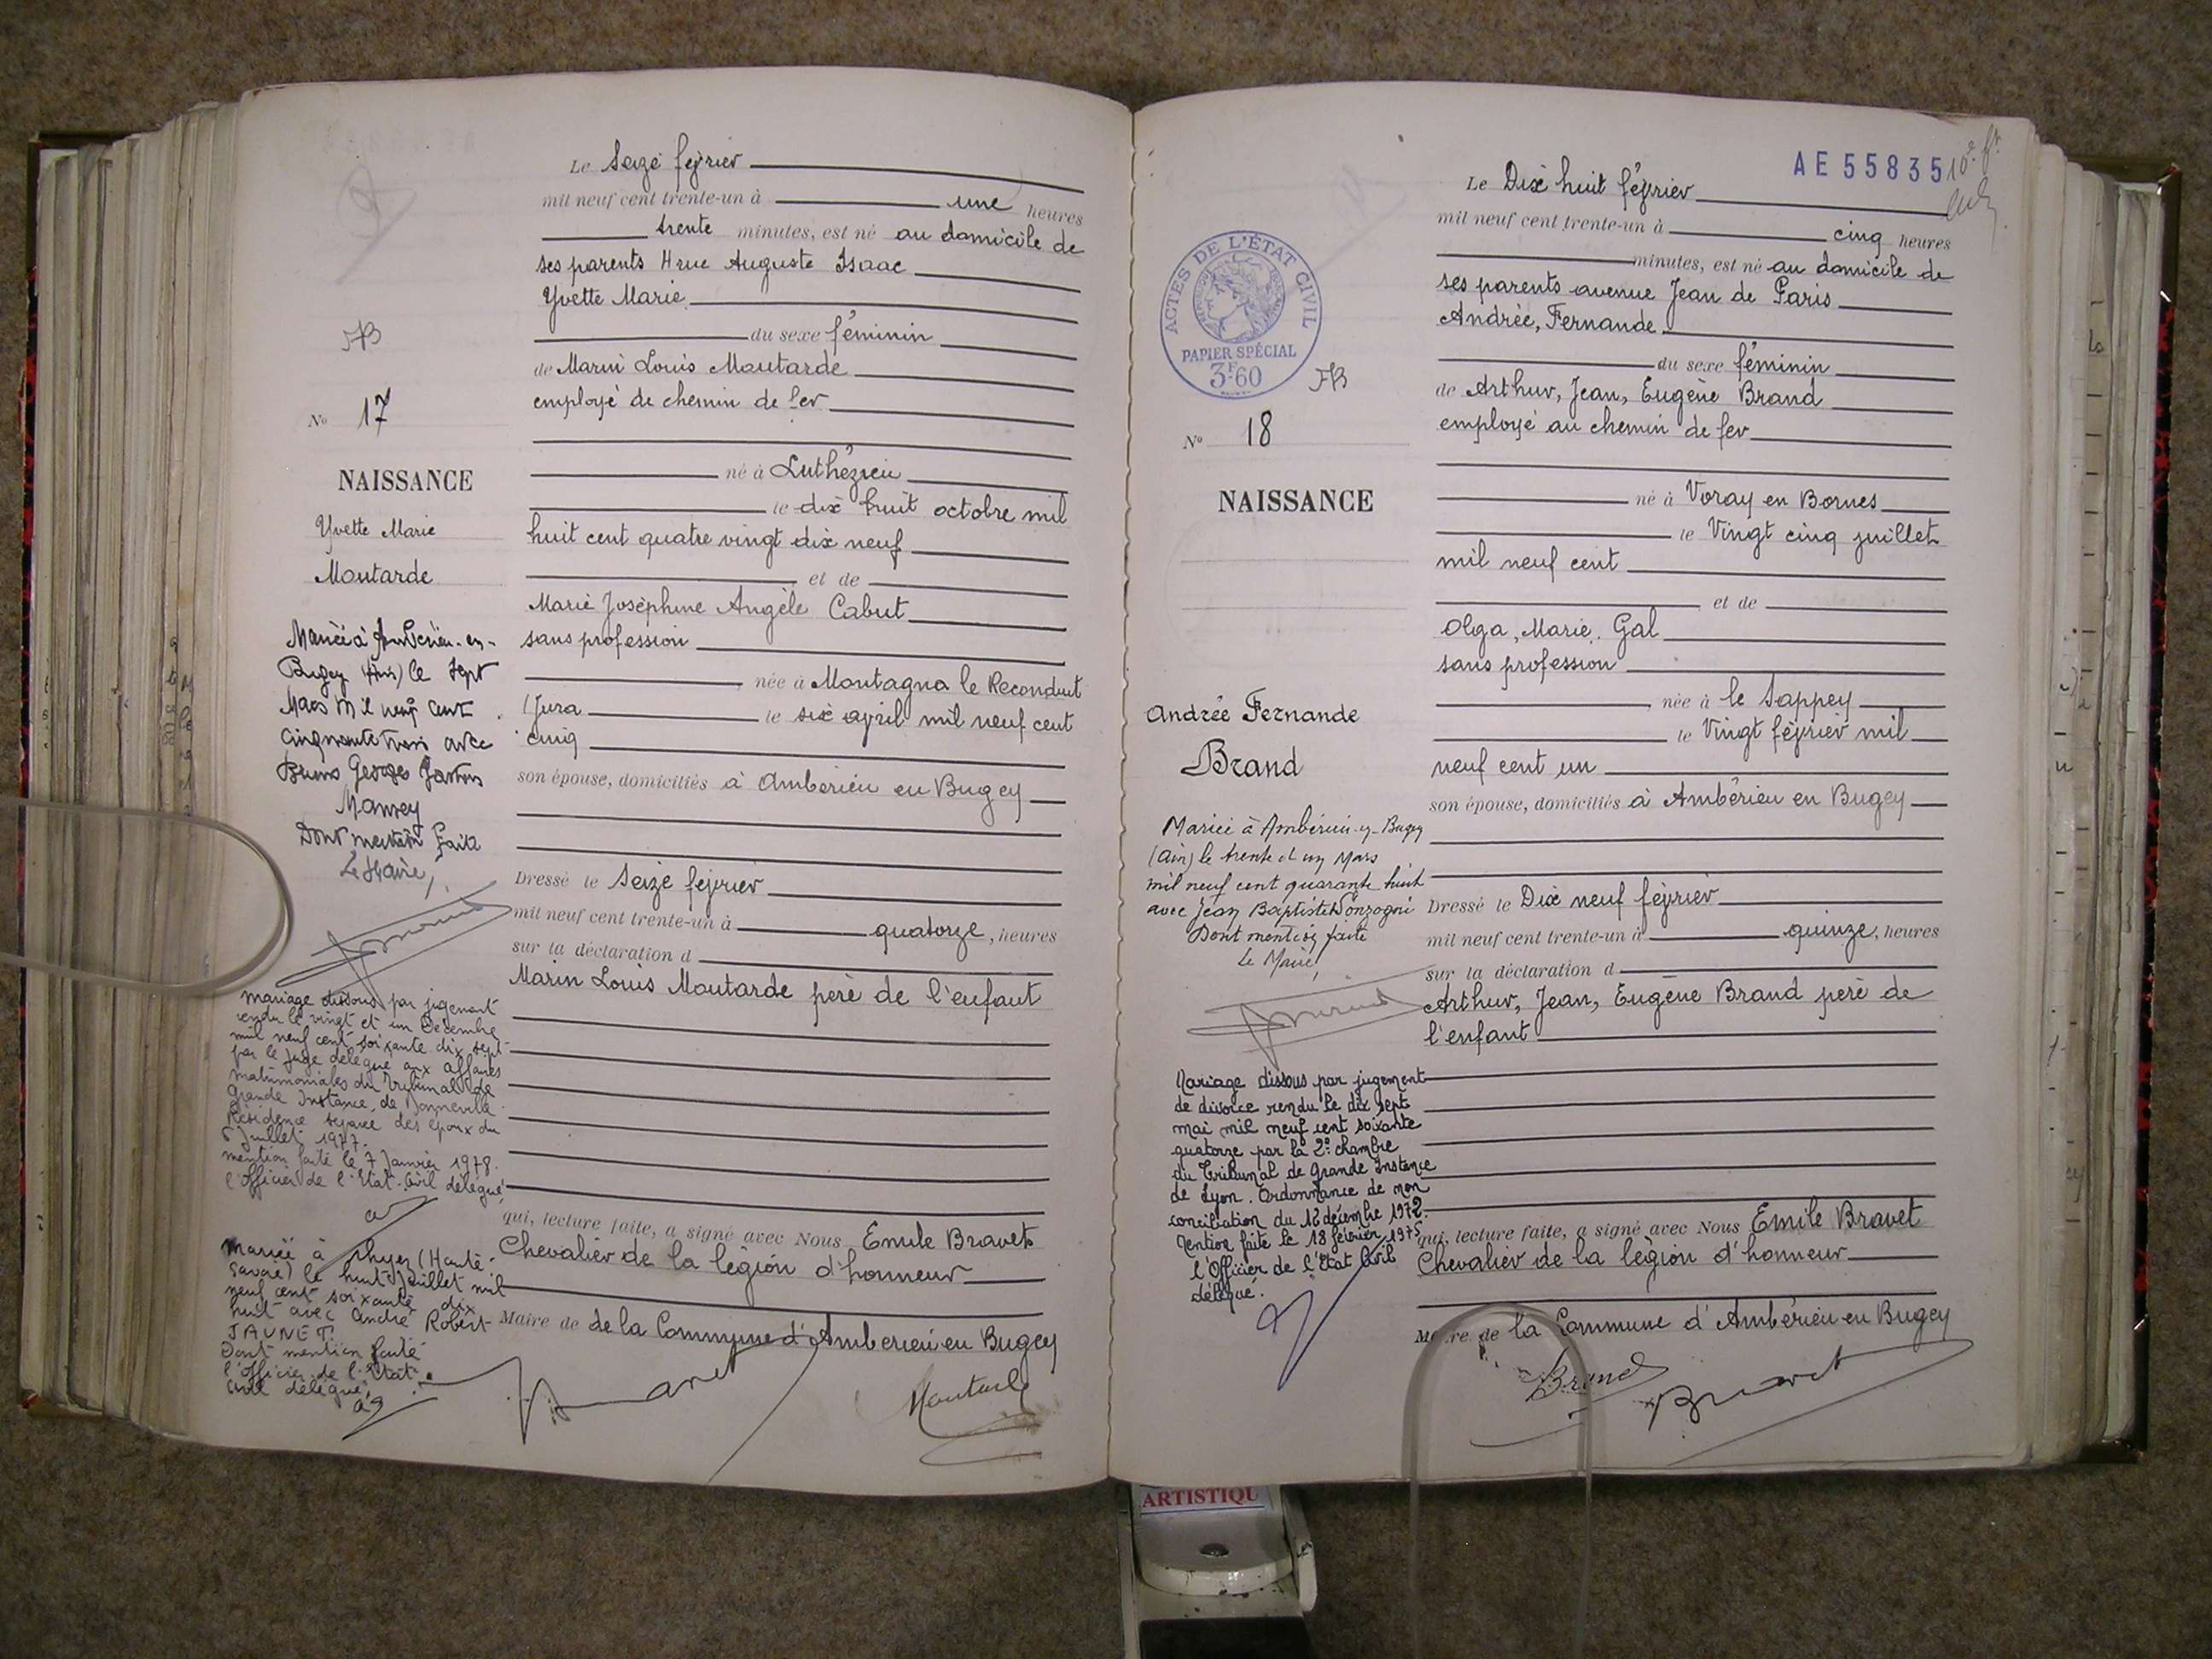 Le Seize février
mil neuf cent trente-un à une heures
trente minutes, est né au domicile de
ses parents 4 rue Auguste Isaac
Yvette Marie
du sexe féminin
de Marin Louis Moutarde
employé de chemin de fer
né à Luthézieu
le dix huit octobre mil
huit cent quatre vingt dix neuf
et de
Marie Joséphine Angèle Cabut
sans profession
née à Montagna le Reconduit
(Jura le six avril mil neuf cent
cinq
son épouse, domiciliés à Ambérieu en Bugey
Dressé le Seize février
mil neuf cent trente-un à quatorze, heures
sur la déclaration d
Marin Louis Moutarde père de l'enfant
qui, lecture faite, a signé avec Nous Emile Bravet
Chevalier de la légion d'honneur
Maire de de la Commune d'Ambérieu en Bugey
Moutarde
JB
No 17
NAISSANCE
Yvette Marie
Moutarde
Mariée à Ambérieu-en-
Bugey (Ain) le sept
Mars mil neuf cent
cinquante trois avec
Georges
Dont mention faite
Le Maire,
mariage dissous par jugement
rendu le vingt et un Décembre
mil neuf cent soixante dix sept
par le juge délégué aux affaires
matrimoniales du Tribunal de
Grande Instance de Bonneville
Résidence séparée des époux du
6 Juillet 1977.
mention faite le 7 Janvier 1978.
l'officier de l'Etat-Civil délégué,
Mariée à Thyez (Haute-
Savoie) le huit Juillet mil
neuf cent soixante dix
huit avec André Robert
JAUNET.
Dont mention faite
l'officier de l'Etat
civil délégué,
AE 55835
Le Dix huit février
mil neuf cent trente-un à cinq heures
minutes, est né au domicile de
ses parents avenue Jean de Paris
Andrée, Fernande
du sexe féminin
de Arthur, Jean, Eugène Brand
employé au chemin de fer
né à Voray en Bornes
le Vingt cinq juillet
mil neuf cent
et de
Olga, Marie, Gal
sans profession
née à le Sappey
le Vingt février mil
neuf cent un
son épouse, domiciliés à Ambérieu en Bugey
Dressé le Dix neuf février
mil neuf cent trente-un à quinze, heures
sur la déclaration d
Arthur, Jean, Eugène Brand père de
l'enfant
qui, lecture faite, a signé avec Nous Emile Bravet
Chevalier de la légion d'honneur
Maire de la Commune d'Ambérieu en Bugey
Brand
Bravet
ACTES DE L'ÉTAT CIVIL
PAPIER SPÉCIAL
3F60
JB
No 18
NAISSANCE
Andrée Fernande
Brand
Mariée à Ambérieu-en-Bugey
(Ain) le trente et un Mars
mil neuf cent quarante huit
avec Jean Baptiste Sonzogni
Dont mention faite
Le Maire,
Mariage dissous par jugement
de divorce rendu le dix sept
mai mil neuf cent soixante
quatorze par la 2e chambre
du Tribunal de Grande Instance
de Lyon. Ordonnance de non
conciliation du 12 décembre 1972.
Mention faite le 18 février 1975
l'Officier de l'Etat Civil
délégué.
ARTISTIQU